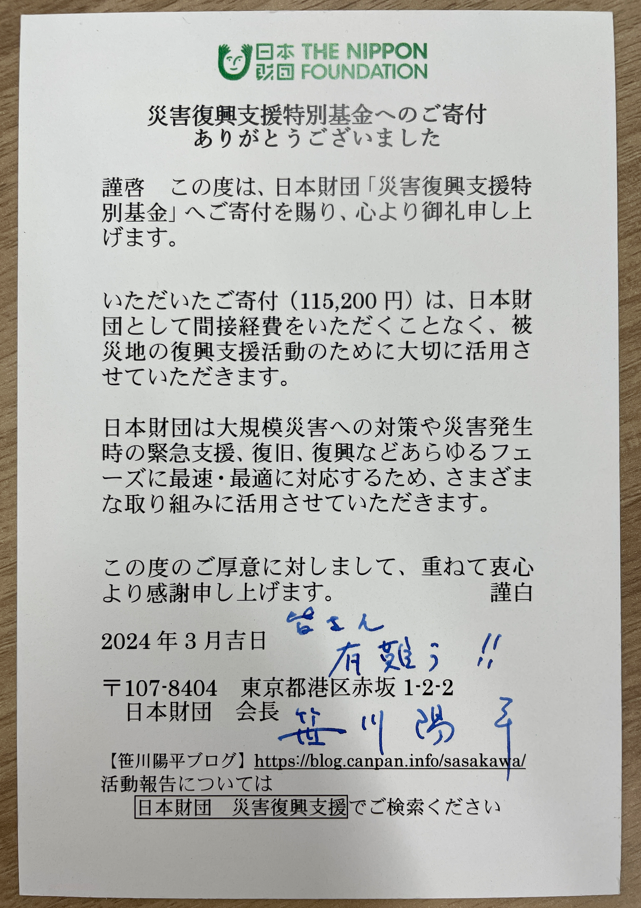 日本 THE NIPPON
財団 FOUNDATION
災害復興支援特別基金へのご寄付
ありがとうございました
謹啓　この度は、日本財団「災害復興支援特
別基金」へご寄付を賜り、心より御礼申し上
げます。
いただいたご寄付（115,200 円）は、日本財
団として間接経費をいただくことなく、被
災地の復興支援活動のために大切に活用さ
せていただきます。
日本財団は大規模災害への対策や災害発生
時の緊急支援、復旧、復興などあらゆるフェ
ーズに最速・最適に対応するため、さまざま
な取り組みに活用させていただきます。
この度のご厚意に対しまして、重ねて衷心
より感謝申し上げます。　謹白
皆さん
2024 年 3 月吉日
有難う!!
〒107-8404　東京都港区赤坂 1-2-2
日本財団　会長　笹川陽平
【笹川陽平ブログ】https://blog.canpan.info/sasakawa/
活動報告については
日本財団　災害復興支援でご検索ください